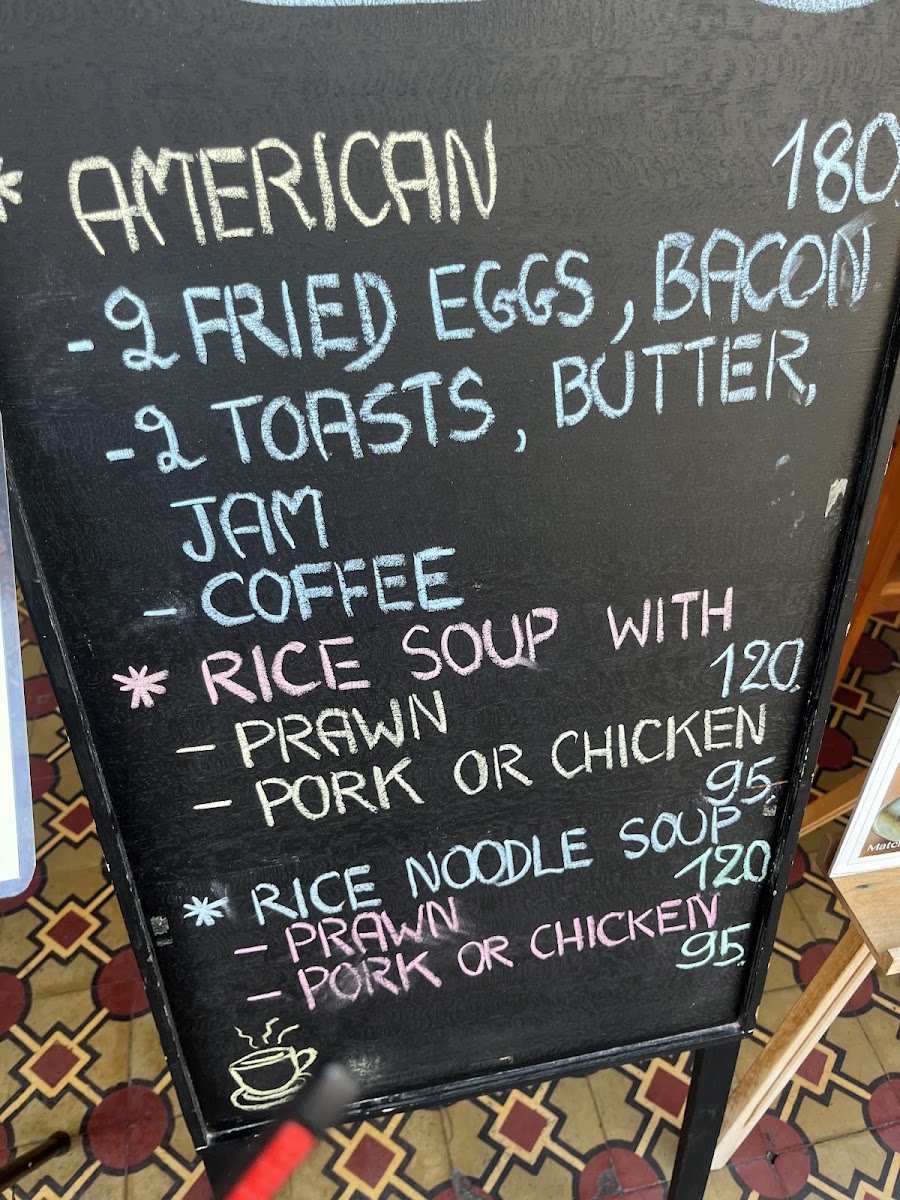 * AMERICAN 180.
- 2 FRIED EGGS, BACON
- 2 TOASTS, BUTTER,
JAM
- COFFEE
* RICE SOUP WITH
- PRAWN 120.
- PORK OR CHICKEN
95.
* RICE NOODLE SOUP
- PRAWN 120
- PORK OR CHICKEN
95.
Matc